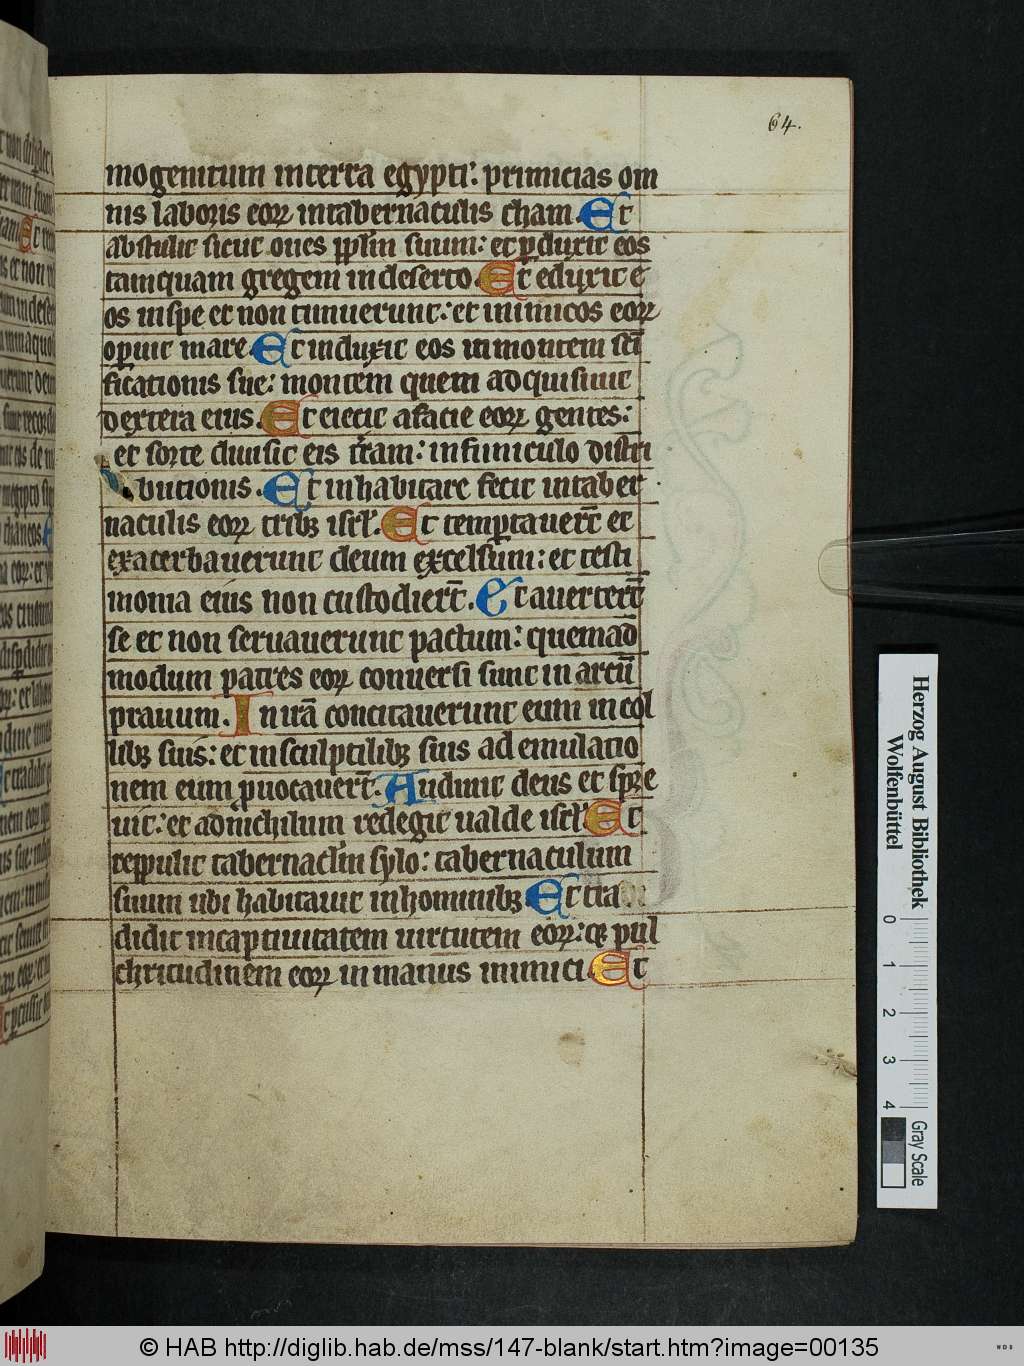 64.
mogenitum in terra egypti: primicias om
nis laboris eoꝝ in tabernaculis cham. Et
abstulit sicut oues pp̄lm suum: et ꝑduxit eos
tamquam gregem in deserto. Et eduxit e
os in spe et non timuerunt: et inimicos eoꝝ
oꝑuit mare. Et induxit eos in montem sc̄i
ficationis sue: montem quem adquisiuit
dextera eius. Et eiecit a facie eoꝝ gentes:
et sorte diuisit eis tr̄am: in funiculo distri
bucionis. Et inhabitare fecit in taber
naculis eoꝝ tribꝫ isrl̄. Et temptauer̄t et
exacerbauerunt deum excelsum: et testi
monia eius non custodier̄t. Et auerter̄t
se et non seruauerunt pactum: quemad
modum patres eoꝝ conuersi sunt in arcū
prauum. In irā concitauerunt eum in col
libꝫ suis: et in sculptilibꝫ suis ad emulatio
nem eum ꝓuocauer̄t. Audiuit deus et spre
uit: et ad nichilum redegit ualde isrl̄. Et
reppulit tabernacl̄m sylo: tabernaculum
suum ubi habitauit in hominibꝫ. Et tra
didit in captiuitatem uirtutem eoꝝ: et pul
chritudinem eoꝝ in manus inimici. Et
Herzog August Bibliothek
Wolfenbüttel
0 1 2 3 4
Gray Scale
© HAB http://diglib.hab.de/mss/147-blank/start.htm?image=00135